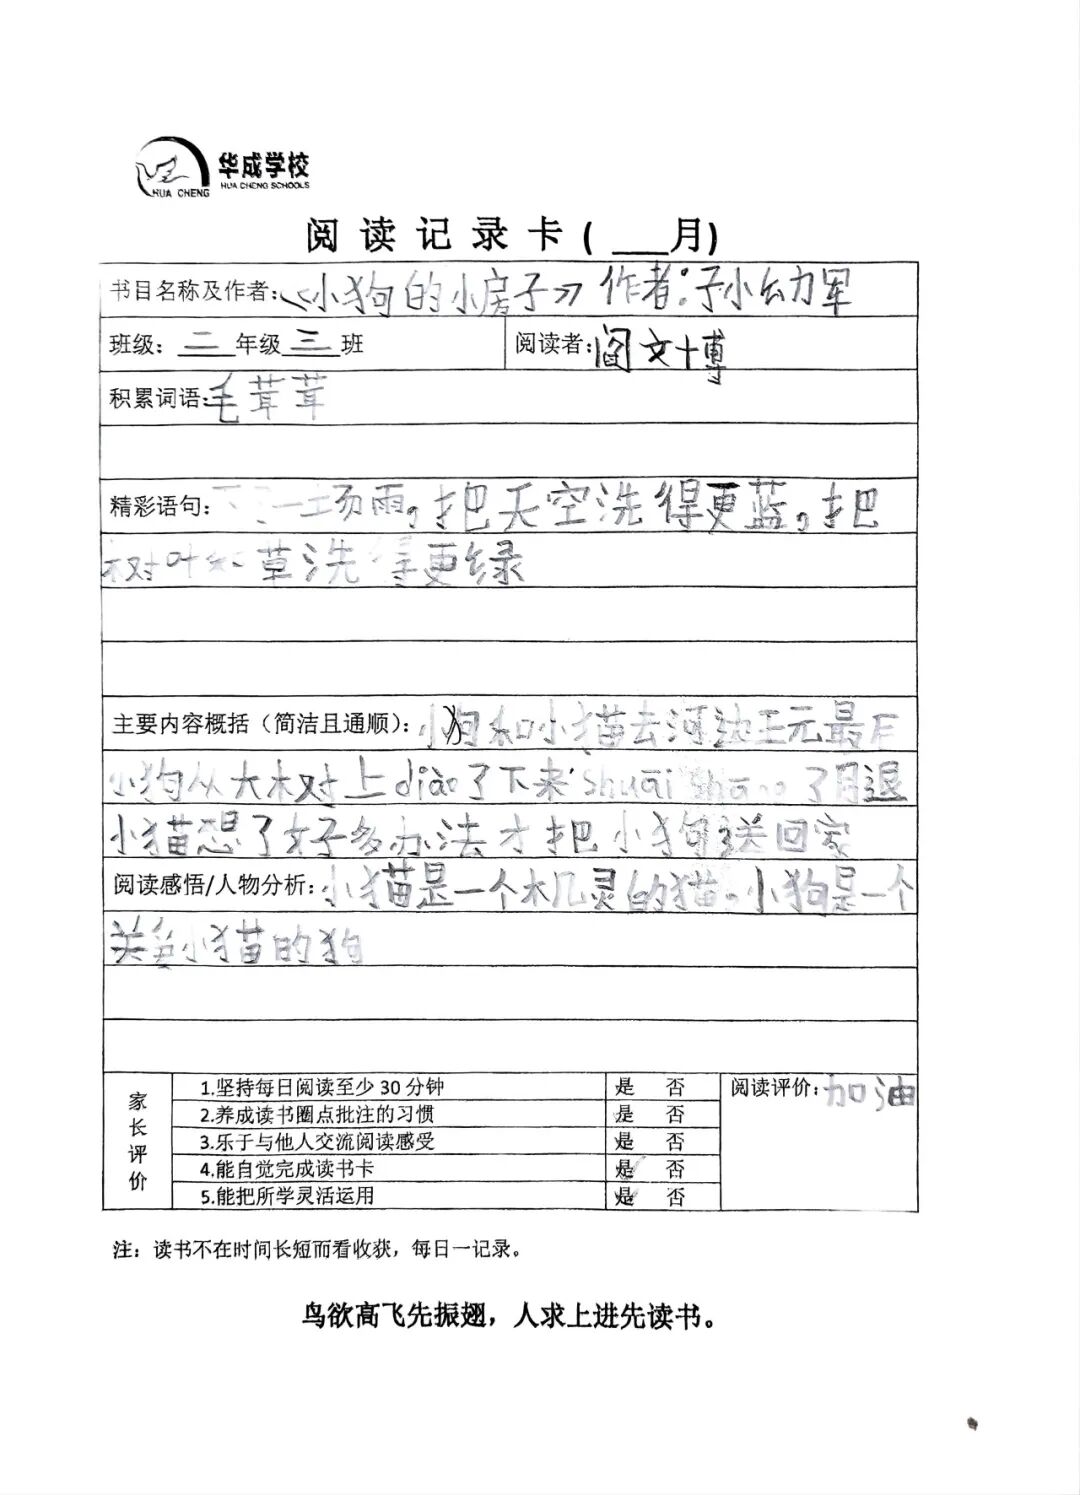 华成学校
HUA CHENG SCHOOLS
HUA CHENG
阅读记录卡(___月)
书目名称及作者:《小狗的小房子》作者:孙小幼军
班级: 二 年级 三 班 阅读者:阎文博
积累词语:毛茸茸
精彩语句: 一场雨,把天空洗得更蓝,把
树叶和草洗得更绿
主要内容概括(简洁且通顺):小狗和小猫去河边玩最后
小狗从大树上diào了下来shuāi shang了腿
小猫想了好多办法才把小狗送回家
阅读感悟/人物分析:小猫是一个机灵的猫。小狗是一个
关爱小猫的狗
家长评价
1.坚持每日阅读至少30分钟 是 否 阅读评价:加油
2.养成读书圈点批注的习惯 是 否
3.乐于与他人交流阅读感受 是 否
4.能自觉完成读书卡 是 否
5.能把所学灵活运用 是 否
注:读书不在时间长短而看收获,每日一记录。
鸟欲高飞先振翅,人求上进先读书。